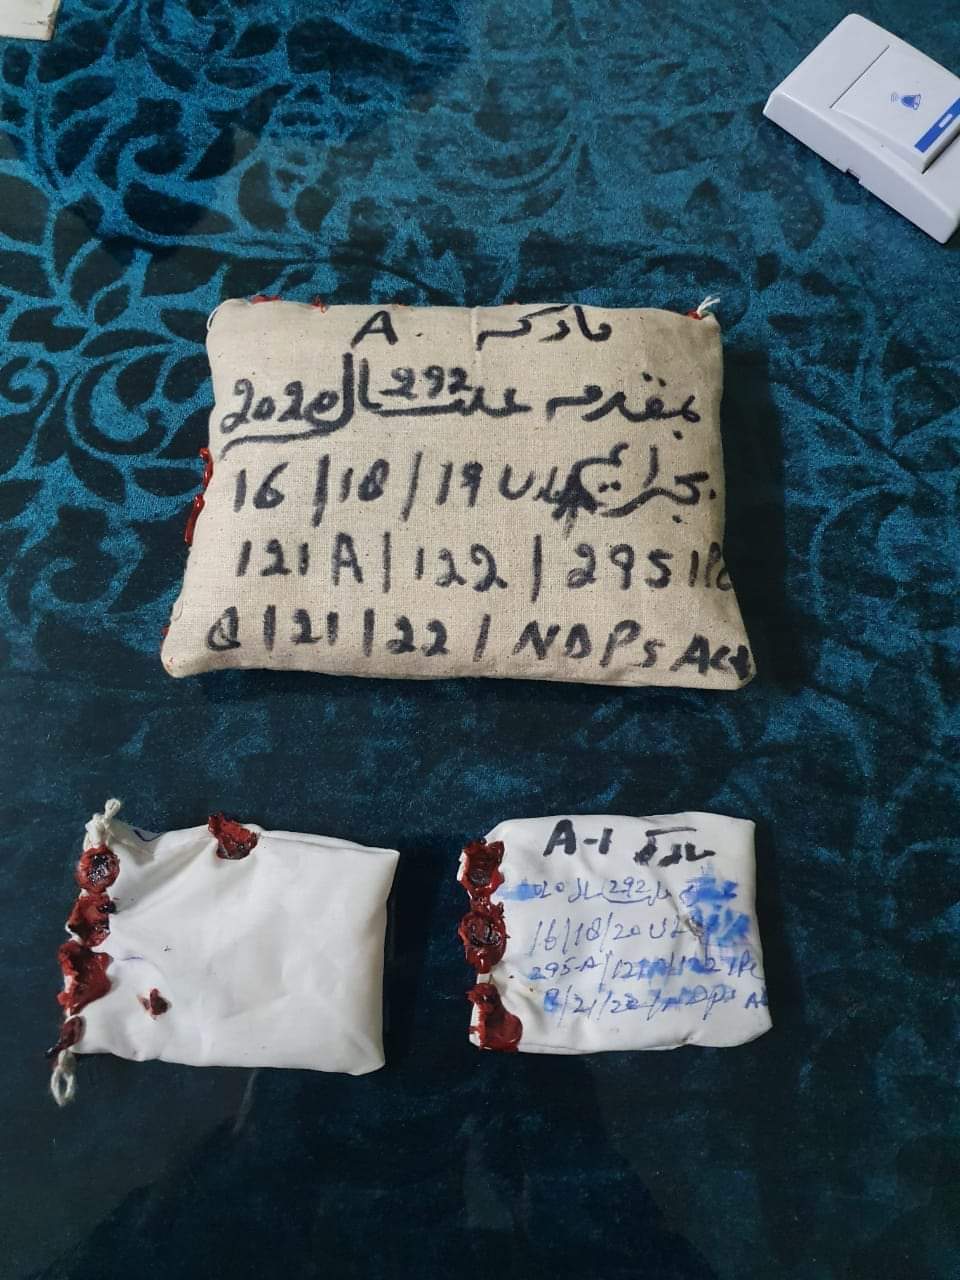 مارکہ A.
بمقدمہ علت 292 سال 2020
بجرائم 16/18/19 ULAP
121A/122/295 IPC
8/21/22/NDPs Act
مارکہ A-1
292 سال
16/18/20 UL
295-A/121A/122 IPc
8/21/22/NDPs A